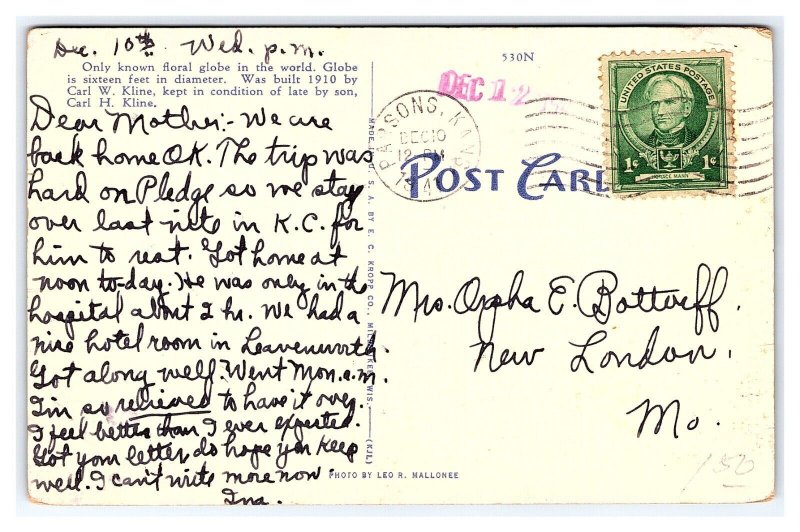 Dec. 10th Wed. p.m.
Only known floral globe in the world. Globe
is sixteen feet in diameter. Was built 1910 by
Carl W. Kline, kept in condition of late by son,
Carl H. Kline.
Dear Mother:- We are
back home OK. The trip was
hard on Pledge so we stay
over last nite in K.C. for
him to rest. Got home at
noon to-day. He was only in the
hospital about 2 hr. We had a
nice hotel room in Leavenworth.
Got along well. Went Mon. a.m.
I'm so relieved to have it over.
I feel better than I ever expected.
Got your letter, do hope you keep
well. I can't write more now.
Ina.
MADE IN U. S. A. BY E. C. KROPP CO., MILWAUKEE, WIS. (KJL)
PHOTO BY LEO R. MALLONEE
530N
DEC 12
PARSONS, KANS.
DEC 10
12 PM
194
POST CARD
UNITED STATES POSTAGE
1¢ 1¢
HORACE MANN
Mrs. Orpha E. Bottorff.
New London.
Mo.
150